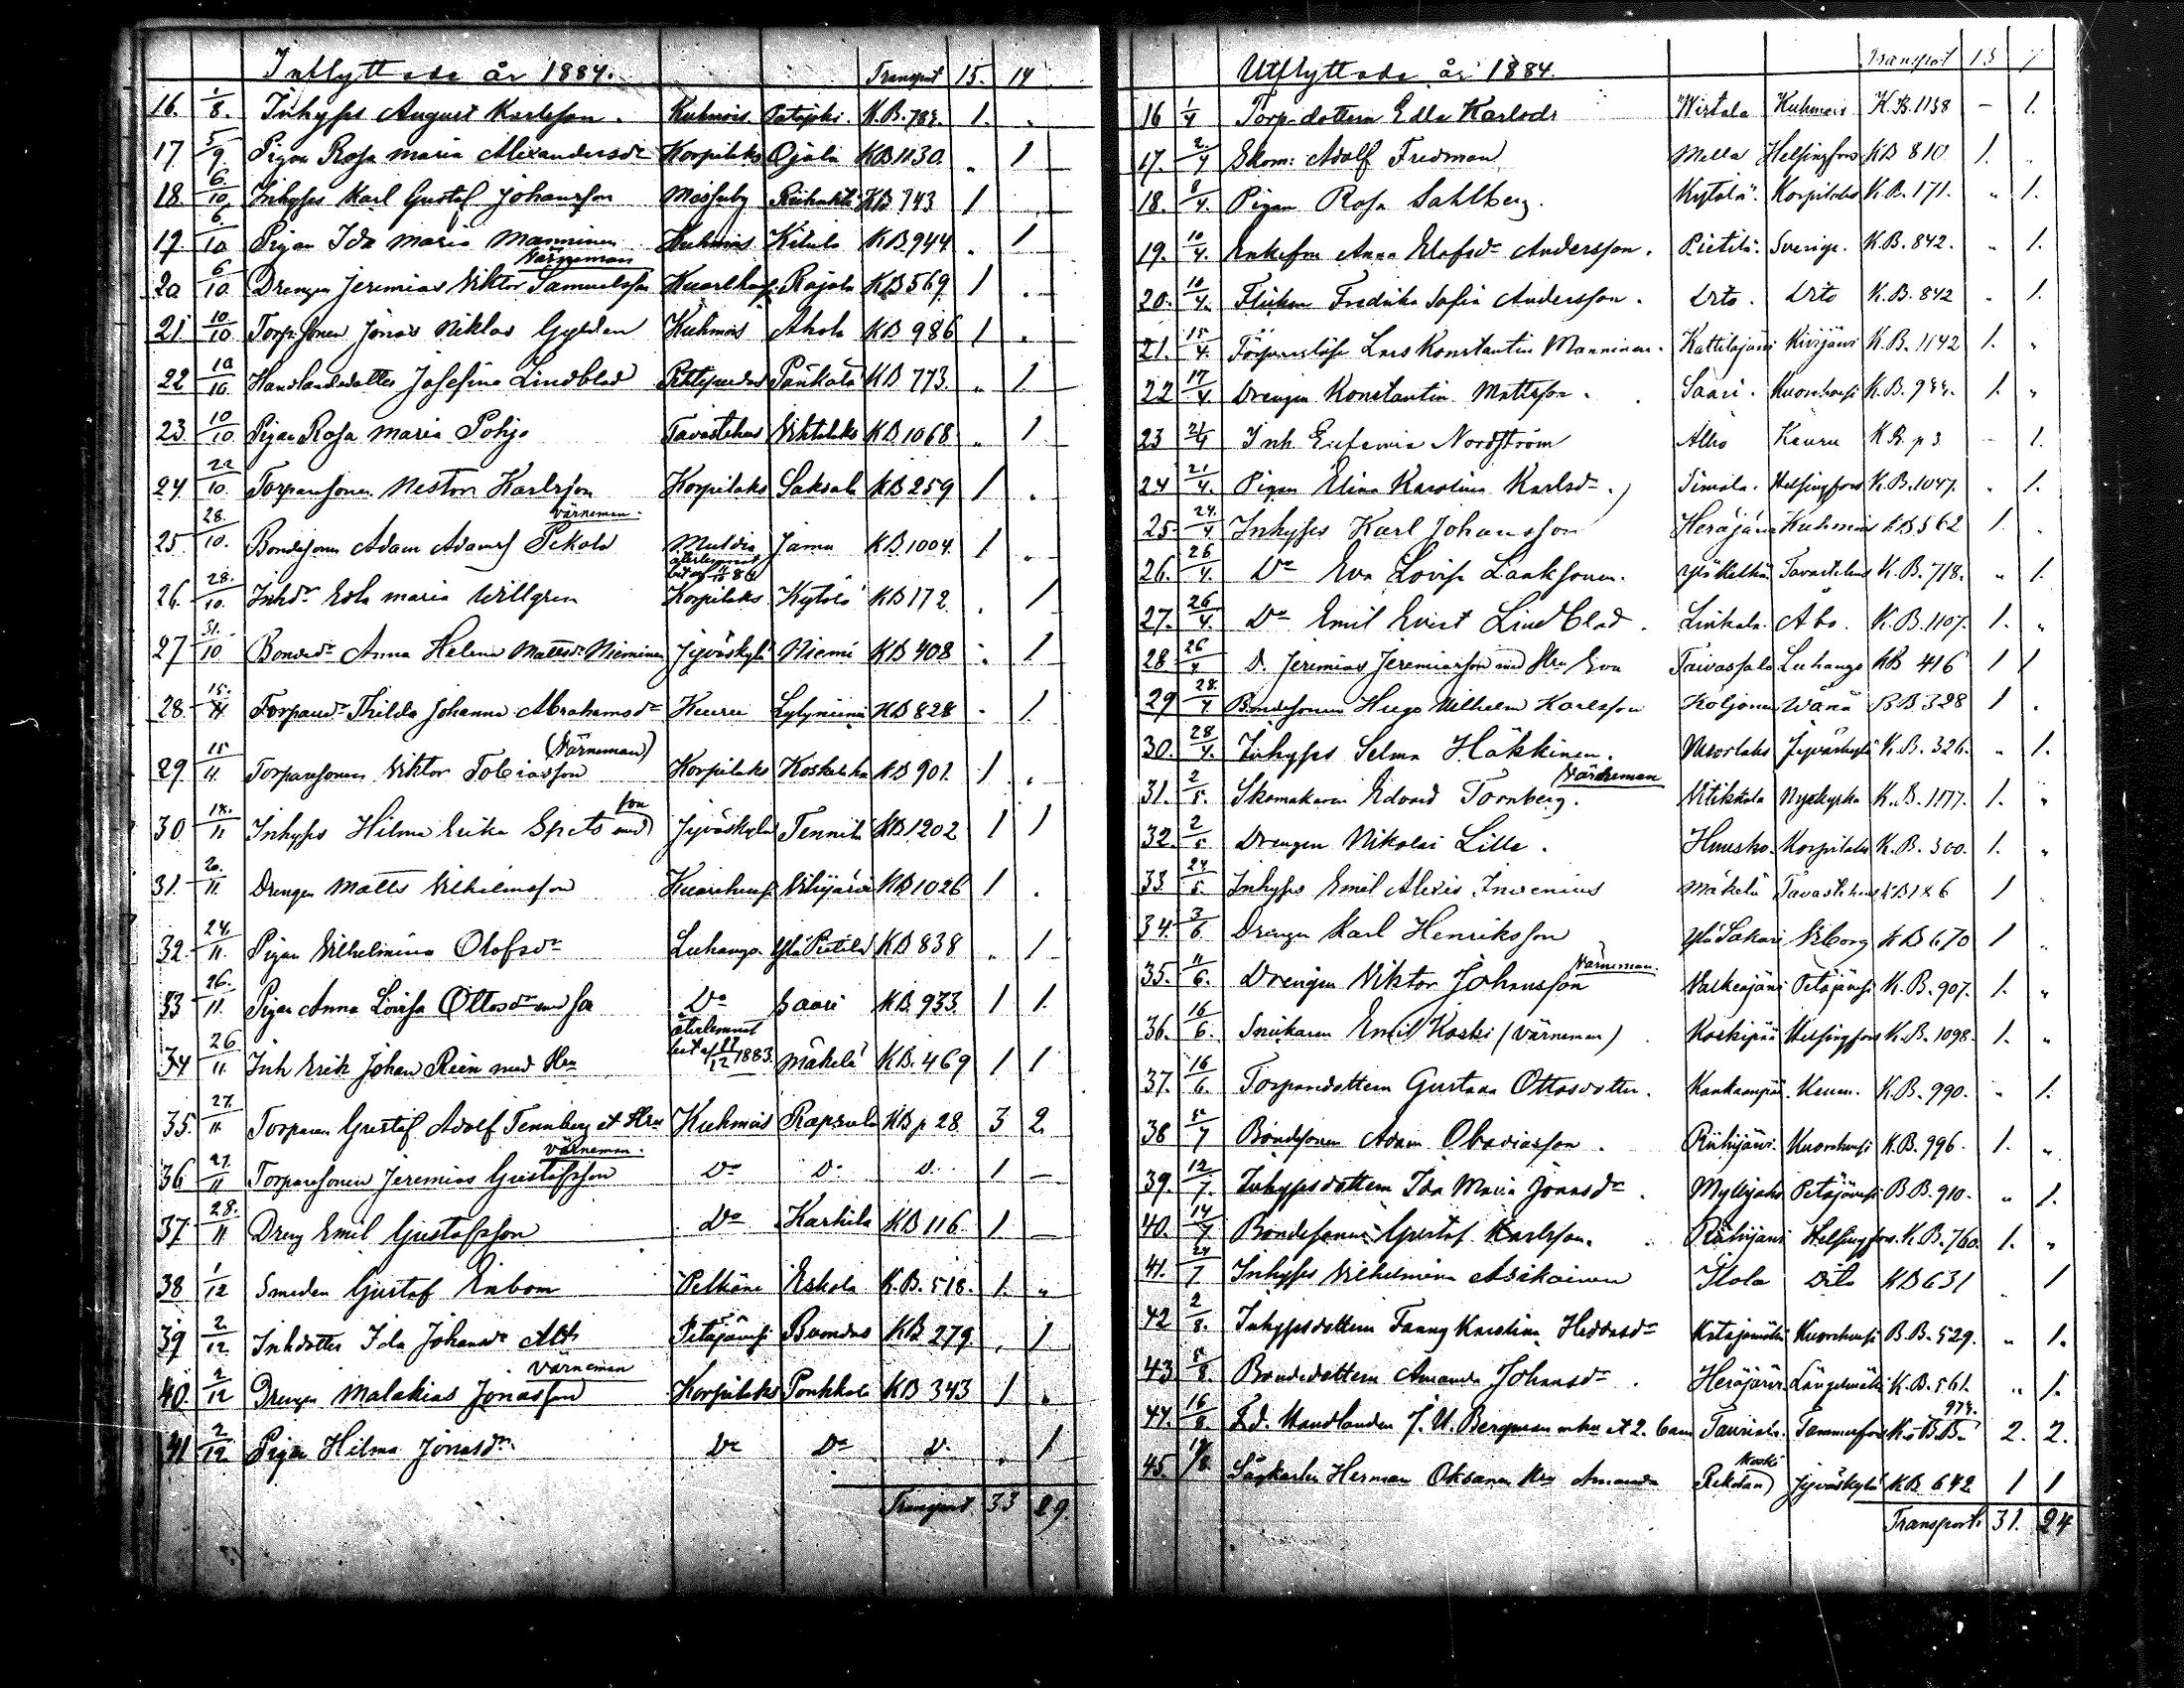 Inflyttade år 1884. Transport 15. 14
16. 1/8. Inhyses August Karlsson. Kuhmois. Patajoki. K.B. 784. 1. "
17 5/9. Pigan Rosa Maria Alexandersdr Korpilaks Ojala KB 1130. " 1
18. 6/10. Inhyses Karl Gustaf Johansson Mässuby Riihilahti KB 743 1 "
19. 6/10 Pigan Ida Maria Manninen Kuhmois Kitula KB 944 " 1
Värneman
20 6/10 Drengen Jeremias Viktor Samuelsson Kuorehvesi Rajala KB 569. 1 "
21. 10/10 Torp.sonen Jonas Niklas Gyldén Kuhmois Ahola KB 986 1 "
22 10/10 Handlandedotter Josefina Lindblad Pihlajavedes Pänkälä KB 773. " 1.
23. 10/10 Pigan Rosa Maria Pohjo Tavastehus Vihtalaks KB 1068 " 1
24 22/10. Torparesonen Nestor Karlsson Korpilaks Saksala KB 259 1 "
värneman.
25. 28./10. Bondesonen Adam Adamss Pekola Multia Jamu KB 1004. 1 "
återlemnat bet af 11/10 84
26. 28./10. Inhdr Eda Maria Willgren Korpilaks Kytölä KB 172 . 1
27 31./10 Bondedr Anna Helena Mattsdr Nieminen Jyväskylä Niemi KB 408 " 1
28. 15./11 Torparedr Thilda Johanna Abrahamsdr Keuru Lylyniemi KB 828 - 1.
(Värneman)
29 15/11. Torparesonen Viktor Tobiasson Korpilaks Koskelka KB 901. 1 "
30 18./11 Inhyses Hilma Erika Spets med son Jyväskylä Tennilä KB 1202 1 1
31. 20./11. Drengen Matts Vilhelmsson Kuorehvesi Vihijärvi KB 1026 1 .
32. 24./11. Pigan Vilhelmina Olofsdr Luhango. Ylä Pietilä KB 838 " 1
33 26./11. Pigan Anna Lovisa Ottosdr med so Do Saari KB. 933. 1 1.
34 26/11. Inh Erik Johan Rein med Hu återlemnat bet af 27/12 1883. Mäkelä KB. 469 1 1
35. 27./11. Torparen Gustaf Adolf Tennberg et Hru Kuhmois Rapsula KB p 28. 3 2.
värneman.
36 27./11 Torparesonen Jeremias Gustafsson Do D. D. 1 -
37. 28./11 Dreng Emil Gustafsson Do Karhila KB 116. 1 -
38 1/12 Smeden Gustaf Enbom Pelkäne Eskola K.B. 518. 1. "
39 2./12. Inhdotter Ida Johansdr Petäjävesi KB 279. . 1
värneman
40. 2/12 Drengen Malakias Jonasson Korpilaks Ponkkala KB 343 1 "
41 2/12. Pigan Hilma Jonasdr Do Do D. " 1
Transport. 33 29.
Utflyttade år 1884. Transport 15 7
16 1/4 Torp-dottern Edla Karlsdr Wirtala Kuhmois K.B. 1158 - 1.
17. 2./4 Skom: Adolf Fredman Mella Helsingfors KB 810 1. "
18. 8/4. Pigan Rosa Sahlberg. Kytölä. Korpilaks K.B. 171. " 1.
19. 10/4. Enkefru Anna Elofsdr Andersson. Pietilä. Sverige. K.B. 842. " 1.
20. 10/4. Flickan Fredrika Sofia Andersson. Dito. Dito K.B. 842 " 1.
21. 15/4. Lars Konstantin Manninen. Kattilajärvi Kivijärvi K.B. 1142 1. "
22 17/4. Drengen Konstantin Mattsson. Saari. Kuorehvesi K.B. 944. 1. "
23 21/4 Inh. Eufemia Nordström Alho Keuru K.B. p 3. - 1.
24 21/4. Pigan Elina Karolina Karlsdr. Simola. Helsingfors K.B. 1047. " 1.
25. 24./4 Inhyses Karl Johansson Heräjärvi Kuhmois KB 562 1. .
26. 26/4. Do Eva Lovisa Laaksonen. Tavastehus K.B. 718. " 1.
27. 26/4. Do Emil Evert Lindblad. Linkala. Åbo. K.B. 1107. 1. "
28 26/4 D. Jeremias Jeremiasson med Hru Eva Taivassalo Luhango KB 416 1 1
29 28./4 Bondesonen Hugo Vilhelm Karlsson Koljonen Wånå BB 328 1 .
30. 28/4. Inhyses Selma Häkkinen. Jyväskylä K.B. 326. " 1.
Värneman
31. 2/5. Skomakaren Edvard Tornberg. Vitikkala Nyslott K.B. 1177. 1. "
32. 2/5 Drengen Nikolai Lilla. Korpilaks K.B. 300. 1. "
33 24/5. Inhyses Emil Alexis Invenius Mäkelä Tavastehus KB 186 1 .
34. 3/6. Drengen Karl Henriksson Ylä Sakari Viborg KB 670 1 "
Värneman.
35. 11/6. Drengen Viktor Johansson Valkeajärvi Petäjävesi K.B. 907. 1. "
36. 16/6. Snickaren Emil Koski (Värneman) Koskipää Helsingfors K.B. 1098. 1. "
37. 16/6. Torparedottern Gustava Ottosdotter. Kankaanpää Keuru. K.B. 990. " 1.
38 5/7 Bondesonen Adam Obadiasson. Riihijärvi. Kuorehvesi K.B. 996. 1. "
39. 12/7. Inhysesdottern Ida Maria Jonasdr. Myllyjoki Petäjävesi B.B. 910. " 1.
40. 14/7 Bondesonen Gustaf Karlsson. Riihijärvi Helsingfors. K.B. 760. 1. "
41. 24/7 Inhyses Vilhelmina Asikainen Ilola Dito KB 631 . 1
42 2/8. Inhysesdottern Fanny Kristina Heddasdr Kuorehvesi B.B. 529. " 1.
43 5/8. Bondedottern Amanda Johansdr. Heräjärvi. Längelmäki K.B. 561. " 1.
44. 16/8 F.d. Handlanden J. U. Bergman m hu et 2. barn Tauriala. Tammerfors K. B.B. 974. 2. 2.
45. 19/8. Sågkarlen Herman Oksanen Hru Amanda Koski Pekolan Jyväskylä KB 642 1 1
Transport. 31. 24